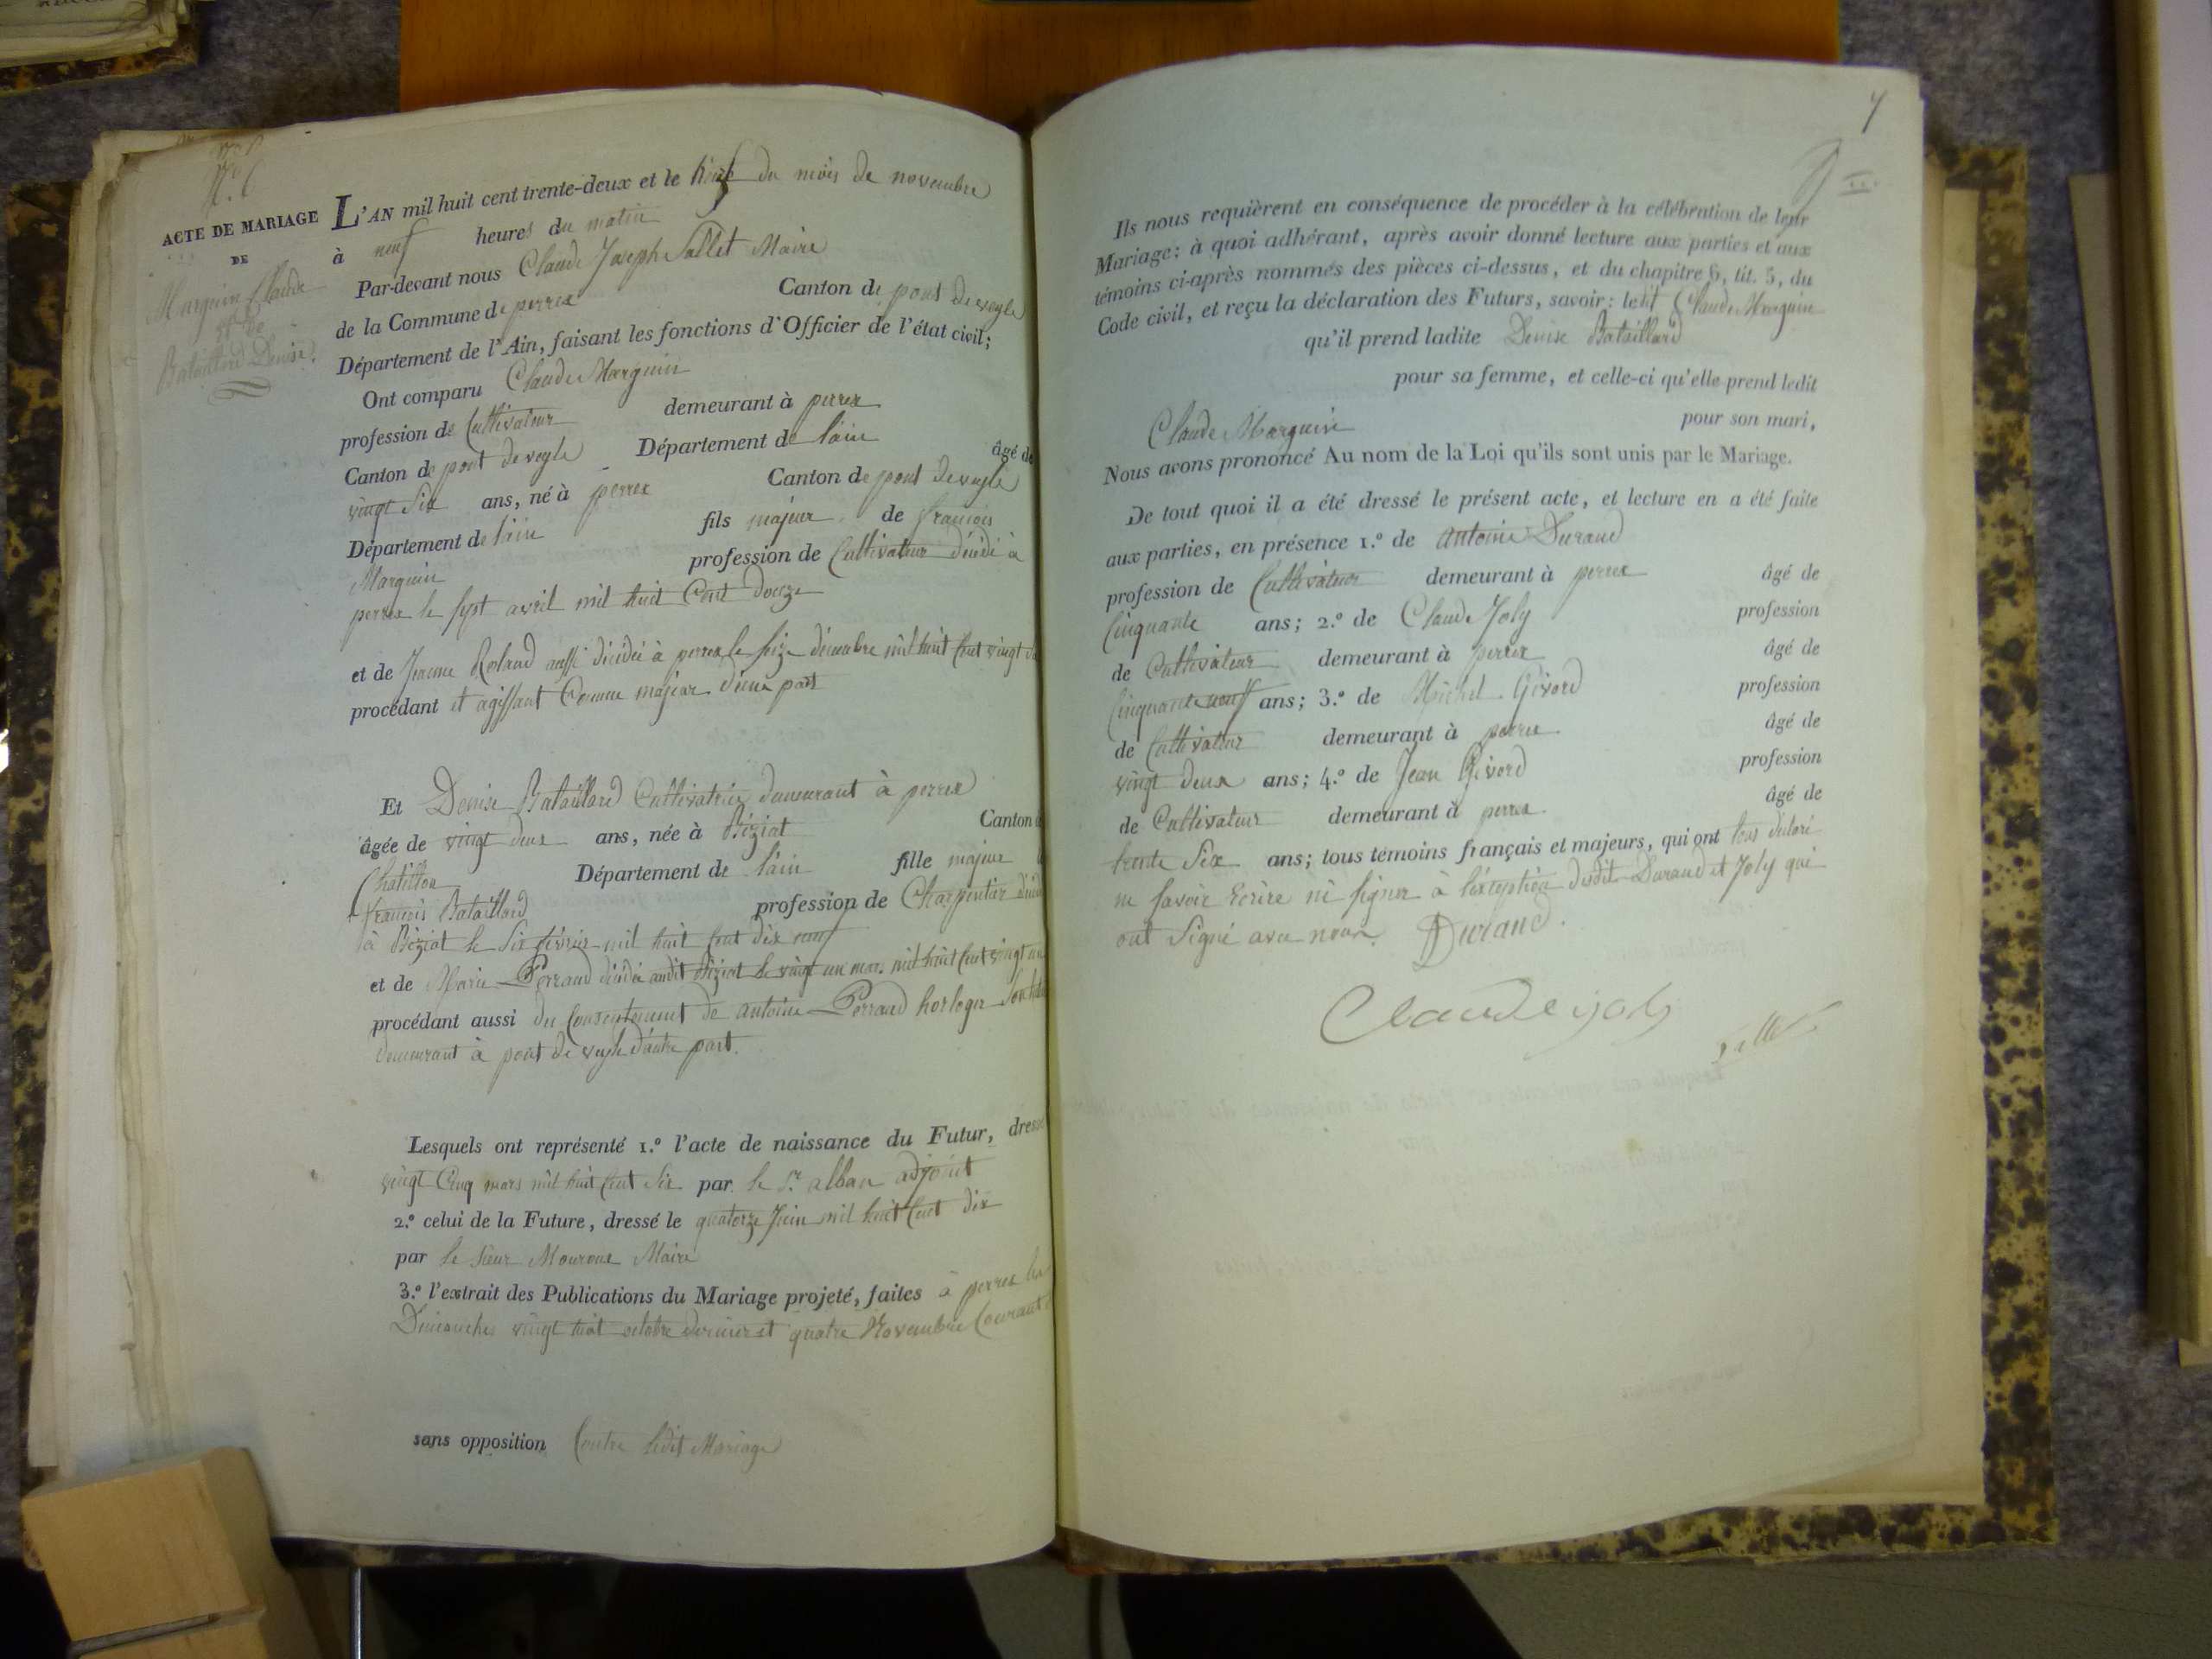 N.º 6
ACTE DE MARIAGE
DE
Marguin Claude
et de
Bataillard Denise.
L'AN mil huit cent trente-deux et le du mois de novembre
à neuf heures du matin
Par-devant nous Claude Joseph Sallet Maire
de la Commune de perrex Canton de pont de veyle
Département de l'Ain, faisant les fonctions d'Officier de l'état civil;
Ont comparu Claude Marguin
profession de Cultivateur demeurant à perrex
Canton de pont de veyle Département de l'ain âgé de
vingt Six ans, né à perrex Canton de pont de veyle
Département de l'ain fils majeur de francois
Marguin profession de Cultivateur décédé à
perrex le sept avril mil huit Cent douze
et de Jeanne Roland aussi décédée à perrex le seize décembre mil huit Cent vingt
procédant et agissant Comme majeur d'une part
Et Denise Bataillard Cultivatrice demeurant à perrex
âgée de vingt deux ans, née à Béziat Canton
Chatillon Département de l'ain fille majeure
francois Bataillard profession de Charpentier
à Béziat le Six février mil huit Cent dix neuf
et de Marie Perraud décédée audit Béziat le vingt un mil huit Cent vingt un
procédant aussi du Consentement de antoine Perraud horloger
demeurant à pont de veyle d'autre part.
Lesquels ont représenté 1.º l'acte de naissance du Futur, dressé
vingt Cinq mars mil huit Cent Six par le Sr. alban adjoint
2.º celui de la Future, dressé le quatorze Juin mil huit Cent dix
par le Sieur Mouroux Maire
3.º l'extrait des Publications du Mariage projeté, faites à perrex les
Dimanches vingt huit octobre dernier et quatre Novembre Courant
sans opposition Contre ledit Mariage
7
Ils nous requièrent en conséquence de procéder à la célébration de leur
Mariage: à quoi adhérant, après avoir donné lecture aux parties et aux
témoins ci-après nommés des pièces ci-dessus, et du chapitre 6, tit. 5, du
Code civil, et reçu la déclaration des Futurs, savoir: ledit Claude Marguin
qu'il prend ladite Denise Bataillard
pour sa femme, et celle-ci qu'elle prend ledit
Claude Marguin pour son mari,
Nous avons prononcé Au nom de la Loi qu'ils sont unis par le Mariage.
De tout quoi il a été dressé le présent acte, et lecture en a été faite
aux parties, en présence 1.º de antoine Durand
profession de Cultivateur demeurant à perrex âgé de
Cinquante ans; 2.º de Claude Joly profession
de Cultivateur demeurant à perrex âgé de
Cinquante neuf ans; 3.º de Michel Givord profession
de Cultivateur demeurant à perrex âgé de
vingt deux ans; 4.º de Jean Givord profession
de Cultivateur demeurant à perrex âgé de
trente Six ans; tous témoins français et majeurs, qui ont tous déclaré
ne savoir Ecrire ni signer à l'exception desdits Durand et Joly qui
ont Signé avec nous.
Durand.
Claude joly
Sallet